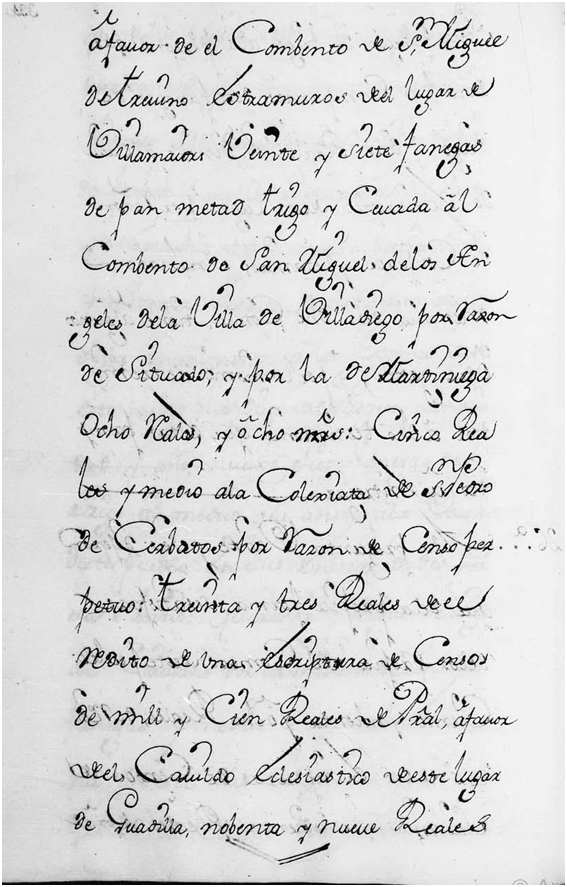 â favor de el Combento de Sn. Miguel
de treuino Estramuros del lugar de
Villamaior; Veinte y siete fanegas
de pan metad trigo y Ceuada ál
Combento de San Miguel de los An
geles de la Villa de Villadiego por Razon
de Situado; y por la de Martiniega
Ocho Rales, y ócho mrs: Cinco Rea
les y medio a la Colexiata de S. Pedro
de Cerbatos por Razon de Censo per
petuo: treinta y tres Reales de el
Redito de una escriptura de Censos
de mill y Cien Reales de Pral, â fauor
del Cauildo eclesiastico de este lugar
de Guadilla, nobenta y nueue Reales